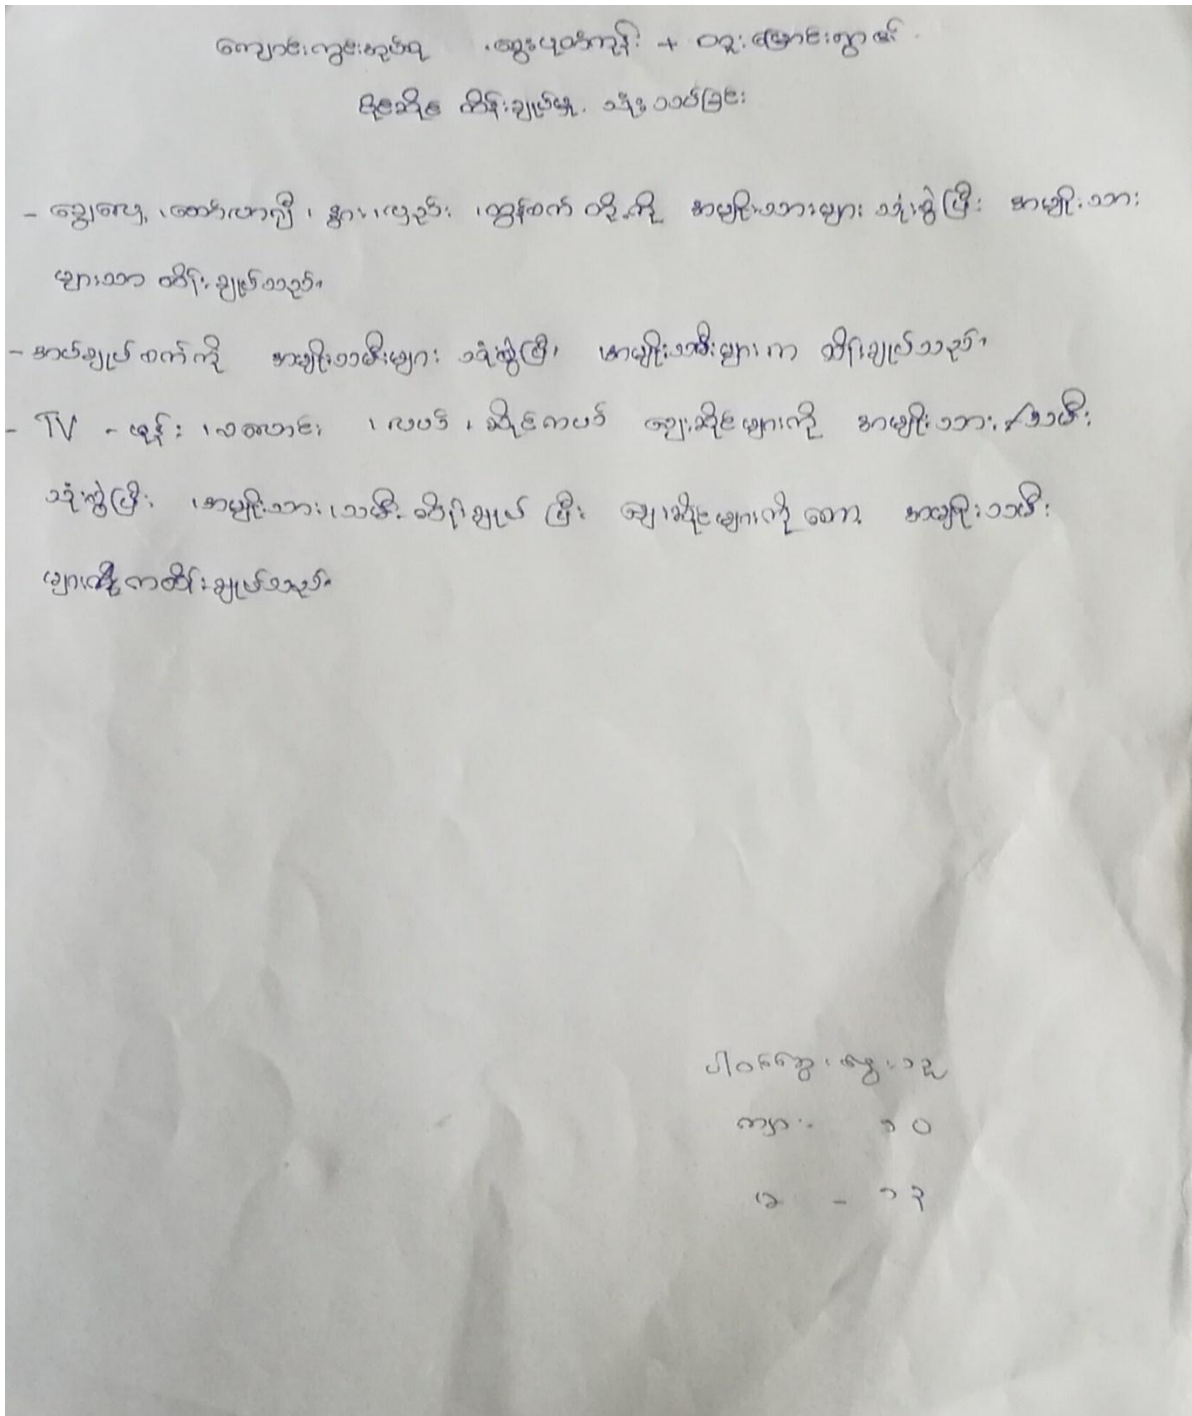 ကျောင်းကွင်းအုပ်စု ၊ ဆွေးပုတ်ကုန်း + ဝဥ်းမြောင်းရွာ၏
ပိုင်ဆိုင် ထိန်းချုပ်မှု. သုံးသပ်ခြင်း
- ချွေလှေ့ ၊ထော်လာဂျီ ၊ နွား၊လှည်း ၊ထွန်စက် တို့ကို အမျိုးသားများ သုံးစွဲပြီး အမျိုးသား
များသာ ထိန်းချုပ်သည်။
- အပ်ချုပ်စက်ကို အမျိုးသမီးများ သုံးစွဲပြီး အမျိုးသမီးများက ထိန်းချုပ်သည်။
- TV - ဖုန်း ၊စလောင်း ၊ လယ် ၊ ဆိုင်ကယ် ဈေးဆိုင်များကို အမျိုးသား/သမီး
သုံးစွဲပြီး ၊အမျိုးသား၊သမီး ထိန်းချုပ် ပြီး ဈေးဆိုင်များကိုတော့ အမျိုးသမီး
များကထိန်းချုပ်သည်။
ပါဝင်ဆွေးနွေးသူ
ကျား - ၁၀
မ - ၁၃